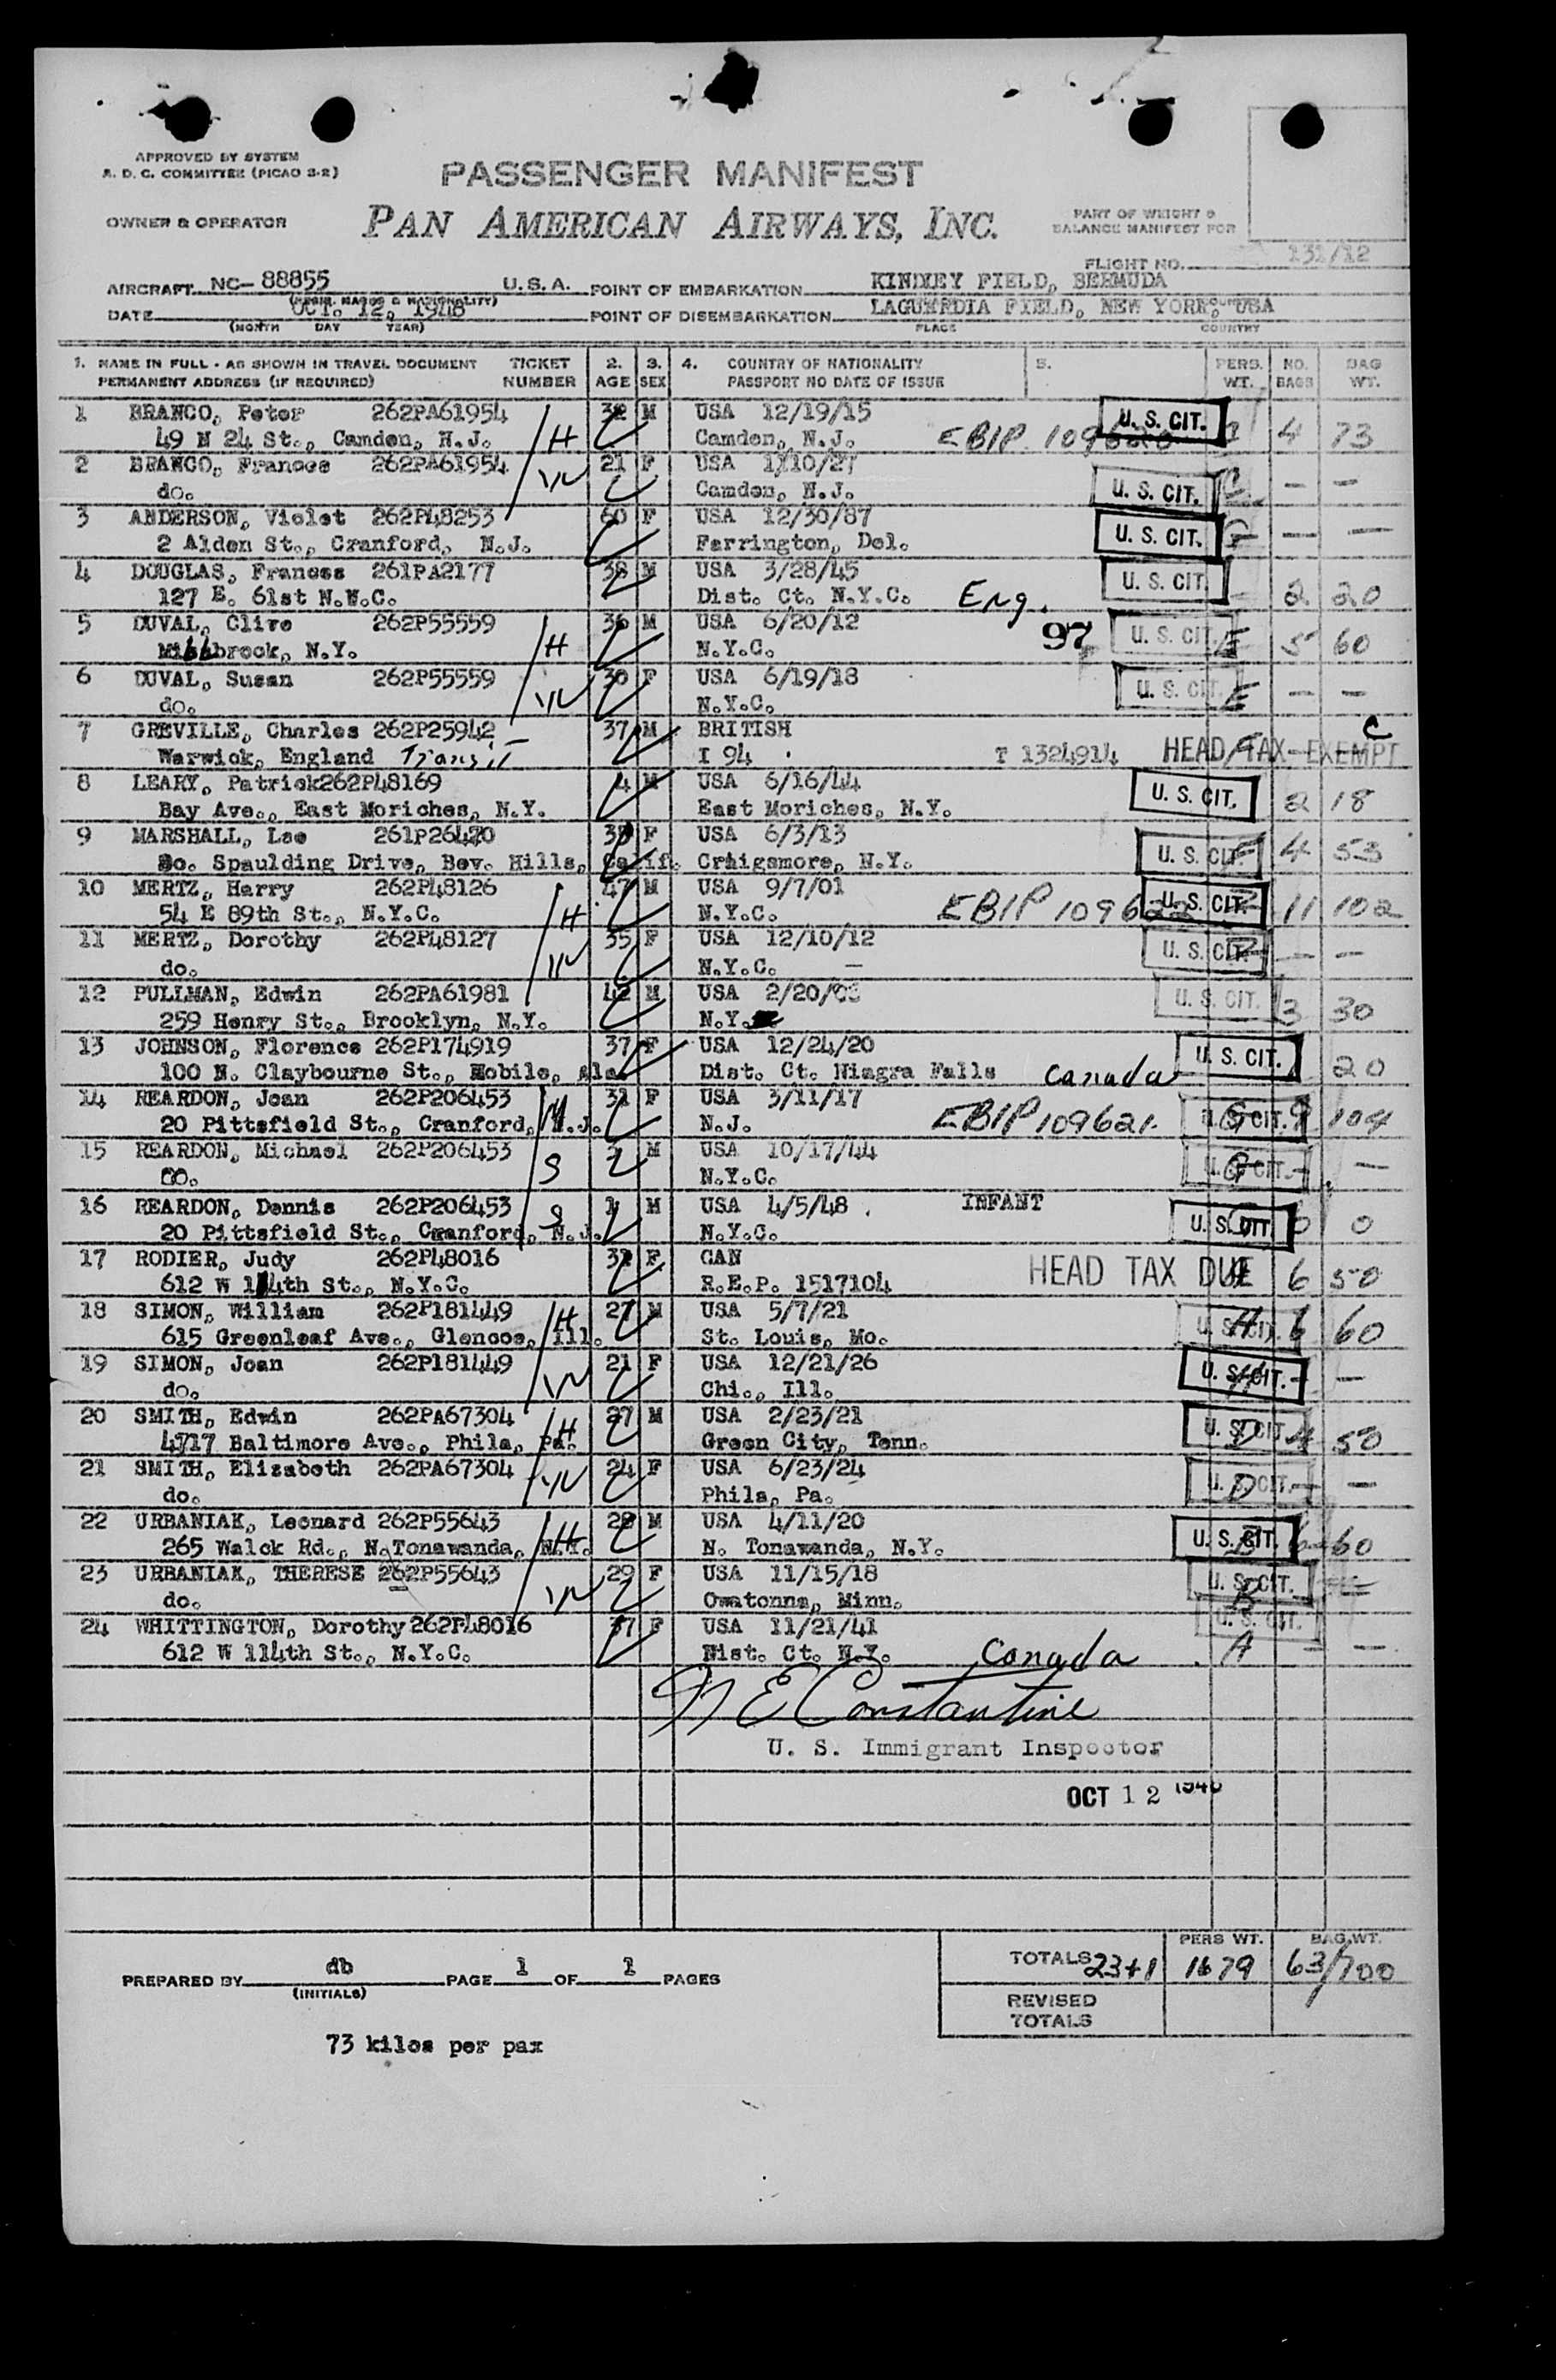 APPROVED BY SYSTEM
A. D. C. COMMITTEE (PICAO S-2)
PASSENGER MANIFEST
OWNER & OPERATOR
PAN AMERICAN AIRWAYS, INC.
PART OF WEIGHT &
BALANCE MANIFEST FOR
FLIGHT NO. 131/12
AIRCRAFT NC- 88855 U.S.A. POINT OF EMBARKATION KINDLEY FIELD, BERMUDA
DATE OCT. 12, 1948 POINT OF DISEMBARKATION LAGUARDIA FIELD, NEW YORK, USA
(MONTH DAY YEAR) PLACE COUNTRY
1. NAME IN FULL - AS SHOWN IN TRAVEL DOCUMENT TICKET 2. 3. 4. COUNTRY OF NATIONALITY 5. PERS. NO. BAG
PERMANENT ADDRESS (IF REQUIRED) NUMBER AGE SEX PASSPORT NO DATE OF ISSUE WT. BAGS WT.
1 BRANCO, Peter 262PA61954 32 M USA 12/19/15 U. S. CIT.
49 N 24 St., Camden, N.J. H Camden, N.J. EBIP 4 73
2 BRANCO, Frances 262PA61954 21 F USA 1/10/27
do. W Camden, N.J. U. S. CIT. — —
3 ANDERSON, Violet 262P48253 60 F USA 12/30/87
2 Alden St., Cranford, N.J. Farrington, Del. U. S. CIT. — —
4 DOUGLAS, Frances 261PA2177 38 M USA 3/28/45 U. S. CIT.
127 E. 61st N.W.C. Dist. Ct. N.Y.C. Eng. 2 20
5 DUVAL, Clive 262P55559 36 M USA 6/20/12 97 U. S. CIT.
Millbrook, N.Y. H N.Y.C. E 5 60
6 DUVAL, Susan 262P55559 30 F USA 6/19/18 U. S. CIT.
do. W N.Y.C. E — —
7 GREVILLE, Charles 262P25942 37 M BRITISH C
Warwick, England Transit I 94 T 1324914 HEAD TAX EXEMPT
8 LEARY, Patrick262P48169 4 M USA 6/16/44 U. S. CIT.
Bay Ave., East Moriches, N.Y. East Moriches, N.Y. 2 18
9 MARSHALL, Lee 261P26420 35 F USA 6/3/13
So. Spaulding Drive, Bev. Hills, Calif. Crhigsmore, N.Y. U. S. CIT. 4 53
10 MERTZ, Harry 262P48126 47 M USA 9/7/01 U. S. CIT.
54 E 89th St., N.Y.C. H N.Y.C. EBIP 109622 11 102
11 MERTZ, Dorothy 262P48127 35 F USA 12/10/12 U. S. CIT.
do. W N.Y.C. — —
12 PULLMAN, Edwin 262PA61981 42 M USA U. S. CIT.
259 Henry St., Brooklyn, N.Y. N.Y. 3 30
13 JOHNSON, Florence 262P174919 37 F USA 12/24/20 U. S. CIT.
100 N. Claybourne St., Mobile, Ala. Dist. Ct. Niagra Falls Canada 20
14 REARDON, Jean 262P206453 31 F USA 3/11/17
20 Pittsfield St., Cranford, N.J. M N.J. EBIP 109621. U. S. CIT. 9 104
15 REARDON, Michael 262P206453 M USA 10/17/44
do. S N.Y.C. U. S. CIT. — —
16 REARDON, Dennis 262P206453 1 M USA 4/5/48 . INFANT
20 Pittsfield St., Cranford, N.J. S N.Y.C. U. S. CIT. 0 0
17 RODIER, Judy 262P48016 32 F CAN
612 W 114th St., N.Y.C. R.E.P. 1517104 HEAD TAX DUE 6 50
18 SIMON, William 262P181449 27 M USA 5/7/21
615 Greenleaf Ave., Glencoe, Ill. H St. Louis, Mo. U. S. CIT. 6 60
19 SIMON, Joan 262P181449 21 F USA 12/21/26
do. W Chi., Ill. U. S. CIT. — —
20 SMITH, Edwin 262PA67304 27 M USA 2/23/21
4717 Baltimore Ave., Phila, Pa. H Green City, Tenn. U. S. CIT. 4 50
21 SMITH, Elizabeth 262PA67304 24 F USA 6/23/24
do. W Phila, Pa. U. S. CIT. D — —
22 URBANIAK, Leonard 262P55643 28 M USA 4/11/20
265 Walck Rd., N.Tonawanda, N.Y. H N. Tonawanda, N.Y. U. S. CIT. 6 60
23 URBANIAK, THERESE 262P55643 29 F USA 11/15/18
do. W Owatonna, Minn. U. S. CIT.
24 WHITTINGTON, Dorothy262P48016 37 F USA 11/21/41 U. S. CIT.
612 W 114th St., N.Y.C. Dist. Ct. N.Y. Canada A — —
Constantine
U. S. Immigrant Inspector
OCT 12 1948
PERS WT. BAG.WT.
TOTALS 23+1 1679 63/700
PREPARED BY db PAGE 1 OF 1 PAGES
(INITIALS)
REVISED
TOTALS
73 kilos per pax